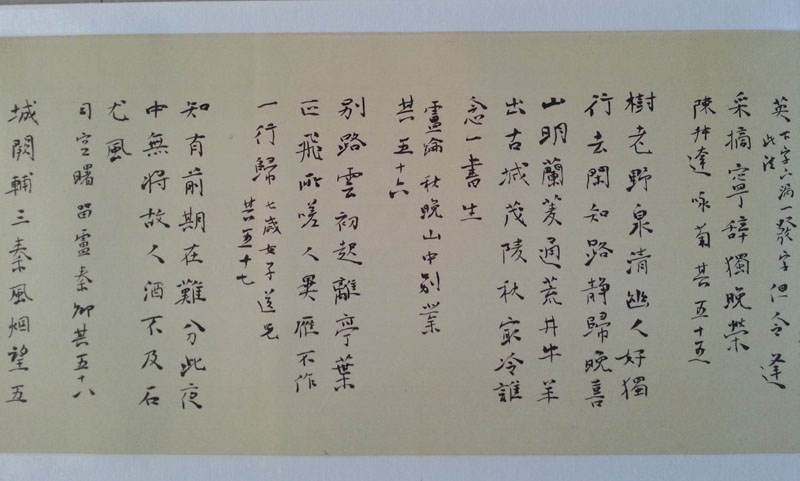 英下字下漏一發字此注但令逢
采摘寧辭獨晚榮
陳叔達詠菊其五十五
樹老野泉清幽人好獨
行去閑知路静歸晚喜
山明蘭菱通荒井牛羊
出古城茂陵秋寂冷誰
念一書生
盧綸秋晚山中別業
其五十六
別路雲初起離亭葉
正飛所嗟人異雁不作
一行歸七歲女子送兄其五十七
知有前期在難分此夜
中無將故人酒不及石
尤風
司空曙留盧秦卿其五十八
城闕輔三秦風烟望五